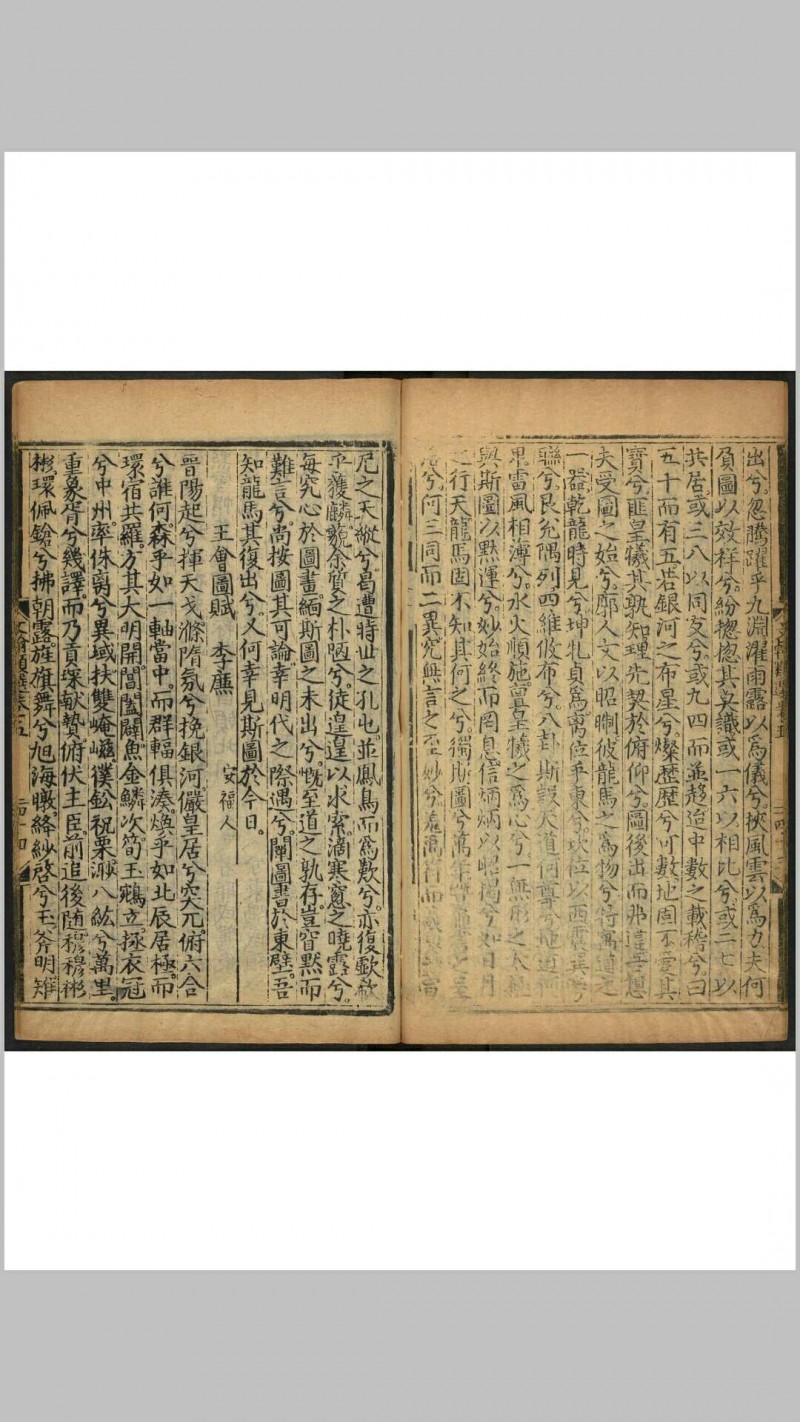 出兮忽騰躍乎九淵濯雨露以爲儀兮挾風雲以爲力夫何
負圖以效祥兮紛揔揔其莫識或一六以相比兮或二七以
共居或三八以同友兮或九四而並趍迨中數之載稽兮曰
五十而有五若銀河之布星兮燦歷歷兮可數地固不愛其
寶兮匪皇犧其孰知理先契於俯仰兮圖後出而弗違
夫受圖之始兮廓人文以昭晣彼龍馬之爲物兮特寓道之
一器乾龍時見兮坤牝貞爲离位乎東兮坎位以西
聮兮艮兊隅列四維攸布兮八卦斯設天道何
雷風相溥兮水火順施羲皇犧之爲心兮一無形之太極
與斯圖以默運兮妙始終而罔息信炳炳以昭揭兮如日月
之行天龍馬固不知其何之兮獨斯圖兮萬年
兮何三同而二異究無言之至妙兮
尼之天縱兮曷遭時世之孔屯並鳳鳥而爲歎兮亦復歔欷
乎獲麟藐余質之朴陋兮徒遑遑以求索滴寒窻之曉露兮
每究心於圖畫緬斯圖之未出兮慨至道之孰存豈窅默而
難言兮尚按圖其可論幸明代之際遇兮闡圖書於東壁吾
知龍馬其復出兮又何幸見斯圖於今日
王會圖賦 李廉 安福人
晉陽起兮揮天戈滌隋氛兮挽銀河儼皇居兮突兀俯六合
兮誰何森乎如一軸當中而群輻俱湊煥乎如北辰居極而
環宿共羅方其大明開閶闔闢魚金鱗次筍玉鵷立拯衣冠
兮中州率侏离兮異域扶雙崦嵫僕鈆祝栗溵八紘兮萬里
重象胥兮幾譯而乃貢琛献贄俯伏主臣前追後随穆穆彬
彬環佩鎗兮拂朝露旌旗舞兮旭海暾絳紗啓兮玉斧明雉